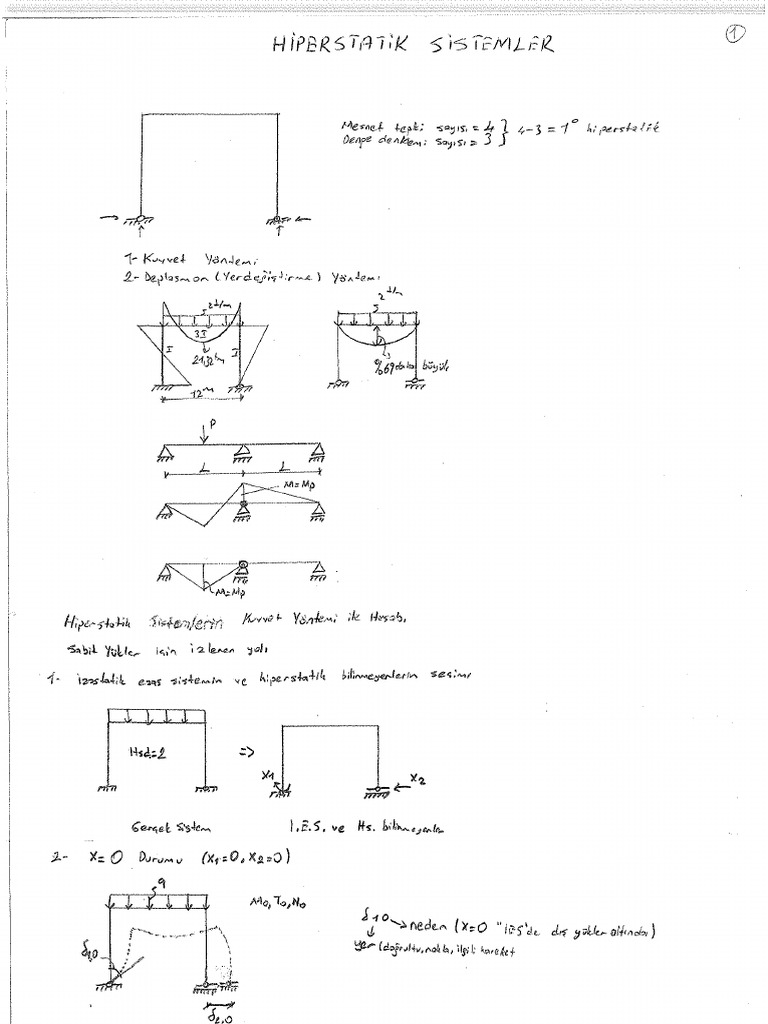 HİPERSTATİK SİSTEMLER
1
Mesnet tepki sayısı = 4 } 4-3 = 1° hiperstatik
Denge denklemi sayısı = 3
1- Kuvvet Yöntemi
2- Deplasman (Yerdeğiştirme) Yöntemi
2 t/m
3I
I
I
21,32 tm
12 m
2 t/m
%69 daha büyük
P
L
L
M=Mp
M=Mp
Hiperstatik Sistemlerin Kuvvet Yöntemi ile Hesabı
Sabit Yükler için izlenen yol
1- izostatik esas sistemin ve hiperstatik bilinmeyenlerin seçimi
Hsd=2
=>
X1
X2
Gerçek Sistem
I.E.S. ve Hs. bilinmeyenler
2- X=0 Durumu (X1=0, X2=0)
q
M0, T0, N0
δ1,0
δ2,0
δ10 → neden (X=0 "IES'de dış yükler altında)
yer (doğrultu, nokta, ilgili hareket